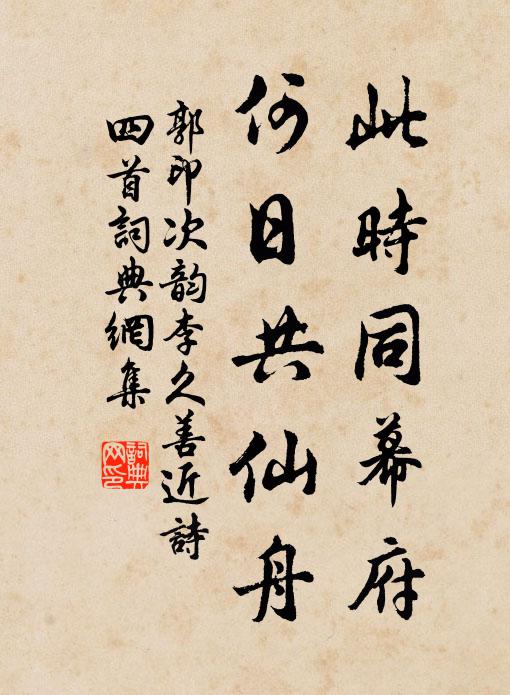 此時同幕府
何日共仙舟
郭印次韵李久善近詩
四首詞典網集
詞典網印